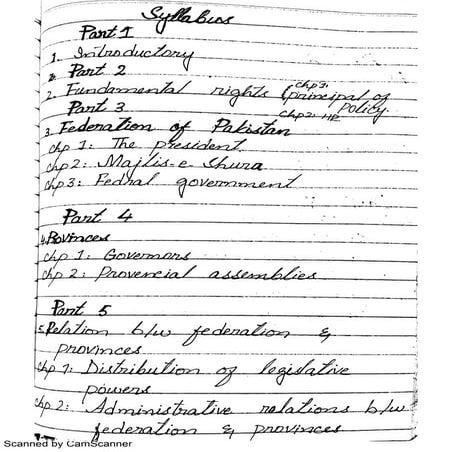 Syllabios
Part 1
1. Introductory
Part 2
2. Fundamental rights (chp3: principal of policy
Part 3 chp2: HR
3. Federation of Pakistan
chp 1: The president
chp 2: Majlis-e Shura
chp 3: Fedral government
Part 4
4. Provinces
chp 1: Governors
chp 2: Provencial assemblies
Part 5
5. Relation b/w federation &
provinces
chp 1: Distribution of legislative
powers
chp 2: Administrative relations b/w
federation & provinces
Scanned by CamScanner